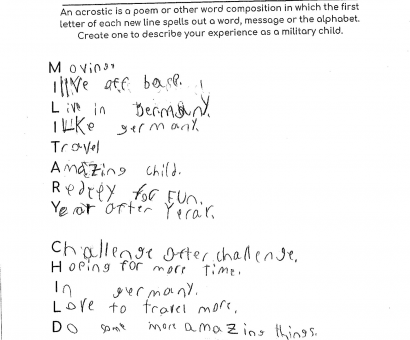 An acrostic is a poem or other word composition in which the first
letter of each new line spells out a word, message or the alphabet.
Create one to describe your experience as a military child.
Moving
I live off base.
Live in Germany.
I like germany.
Travel
Amazing child.
Redey for FUN.
Year after Year.
Challenge after challenge.
Hoping for more time.
In germany.
Love to travel more.
Do some more amazing things.